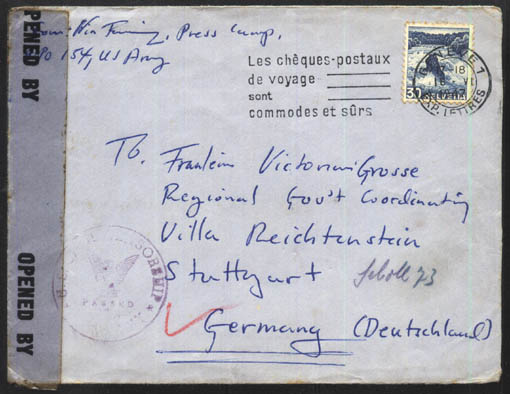 Press Camp,
APO 154, US Army
Les chèques-postaux
de voyage
sont
commodes et sûrs
GENÈVE 1
18
EXP. LETTRES
30
HELVETIA
OPENED BY
OPENED BY
CENSORSHIP
PASSED
To. Fraulein Victoria Grosse
Regional Gov't Coordinating
Villa Reichtenstein
Stuttgart
73
Germany (Deutschland)